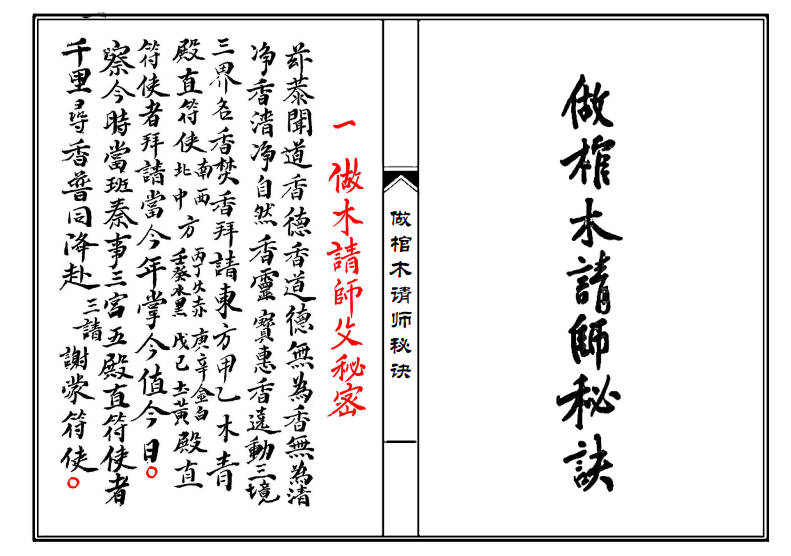 做棺木請師秘訣
做棺木请师秘诀
一 做木請師父秘密
恭聞道香德香道德無為香無為清
净香清净自然香靈寶惠香遶動三境
三界名香焚香拜請東方甲乙木青
殿直符使南西北中方丙丁火赤庚辛金白壬癸水黑戊己土黄殿直
符使者拜請當今年掌今值今日。
察今時當班奏事三宮五殿直符使者
千里尋香普同降赴三請謝蒙符使。